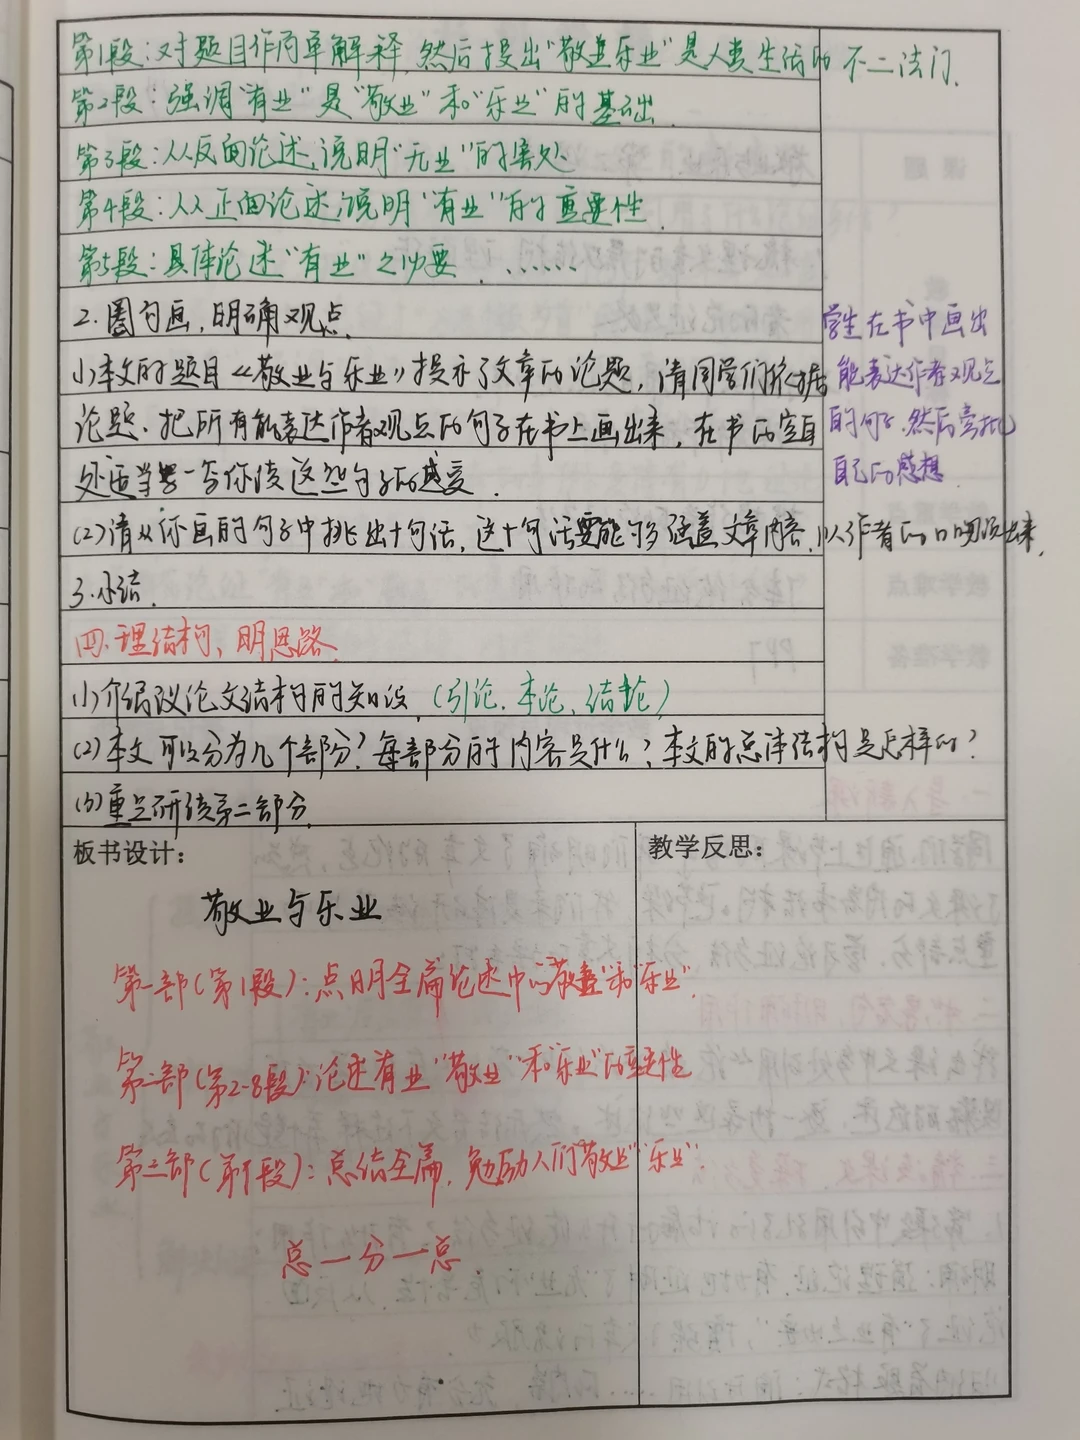 第1段：对题目作简单解释，然后提出“敬业乐业”是人类生活的不二法门．
第2段：强调“有业”是“敬业”和“乐业”的基础．
第3段：从反面论述，说明“无业”的害处
第4段：从正面论述，说明“有业”的重要性．
第5段：具体论述“有业”之必要．……
2.圈勾画，明确观点．
(1)本文的题目《敬业与乐业》提示了文章的论题，请同学们根据
论题、把所有能表达作者观点的句子在书上画出来，在书的空白
处适当写一写你读这些句子的感受．
学生在书中画出
能表达作者观点
的句子．然后旁批
自己的感想．
(2)请从你画的句子中挑出十句话，这十句话要能够涵盖文章内容，以作者的口吻说出来．
3.小结．
四．理结构，明思路．
(1)介绍议论文结构的知识．（引论．本论、结论）
(2)本文可以分为几个部分？每部分的内容是什么？本文的总体结构是怎样的？
(3)重点研读第二部分．
板书设计：
教学反思：
敬业与乐业
第一部(第1段)：点明全篇论述中心“敬业”和“乐业”．
第二部(第2-8段)：论述有业“敬业”和“乐业”的重要性
第三部(第9段)：总结全篇，勉励人们敬业“乐业”．
总一分一总．